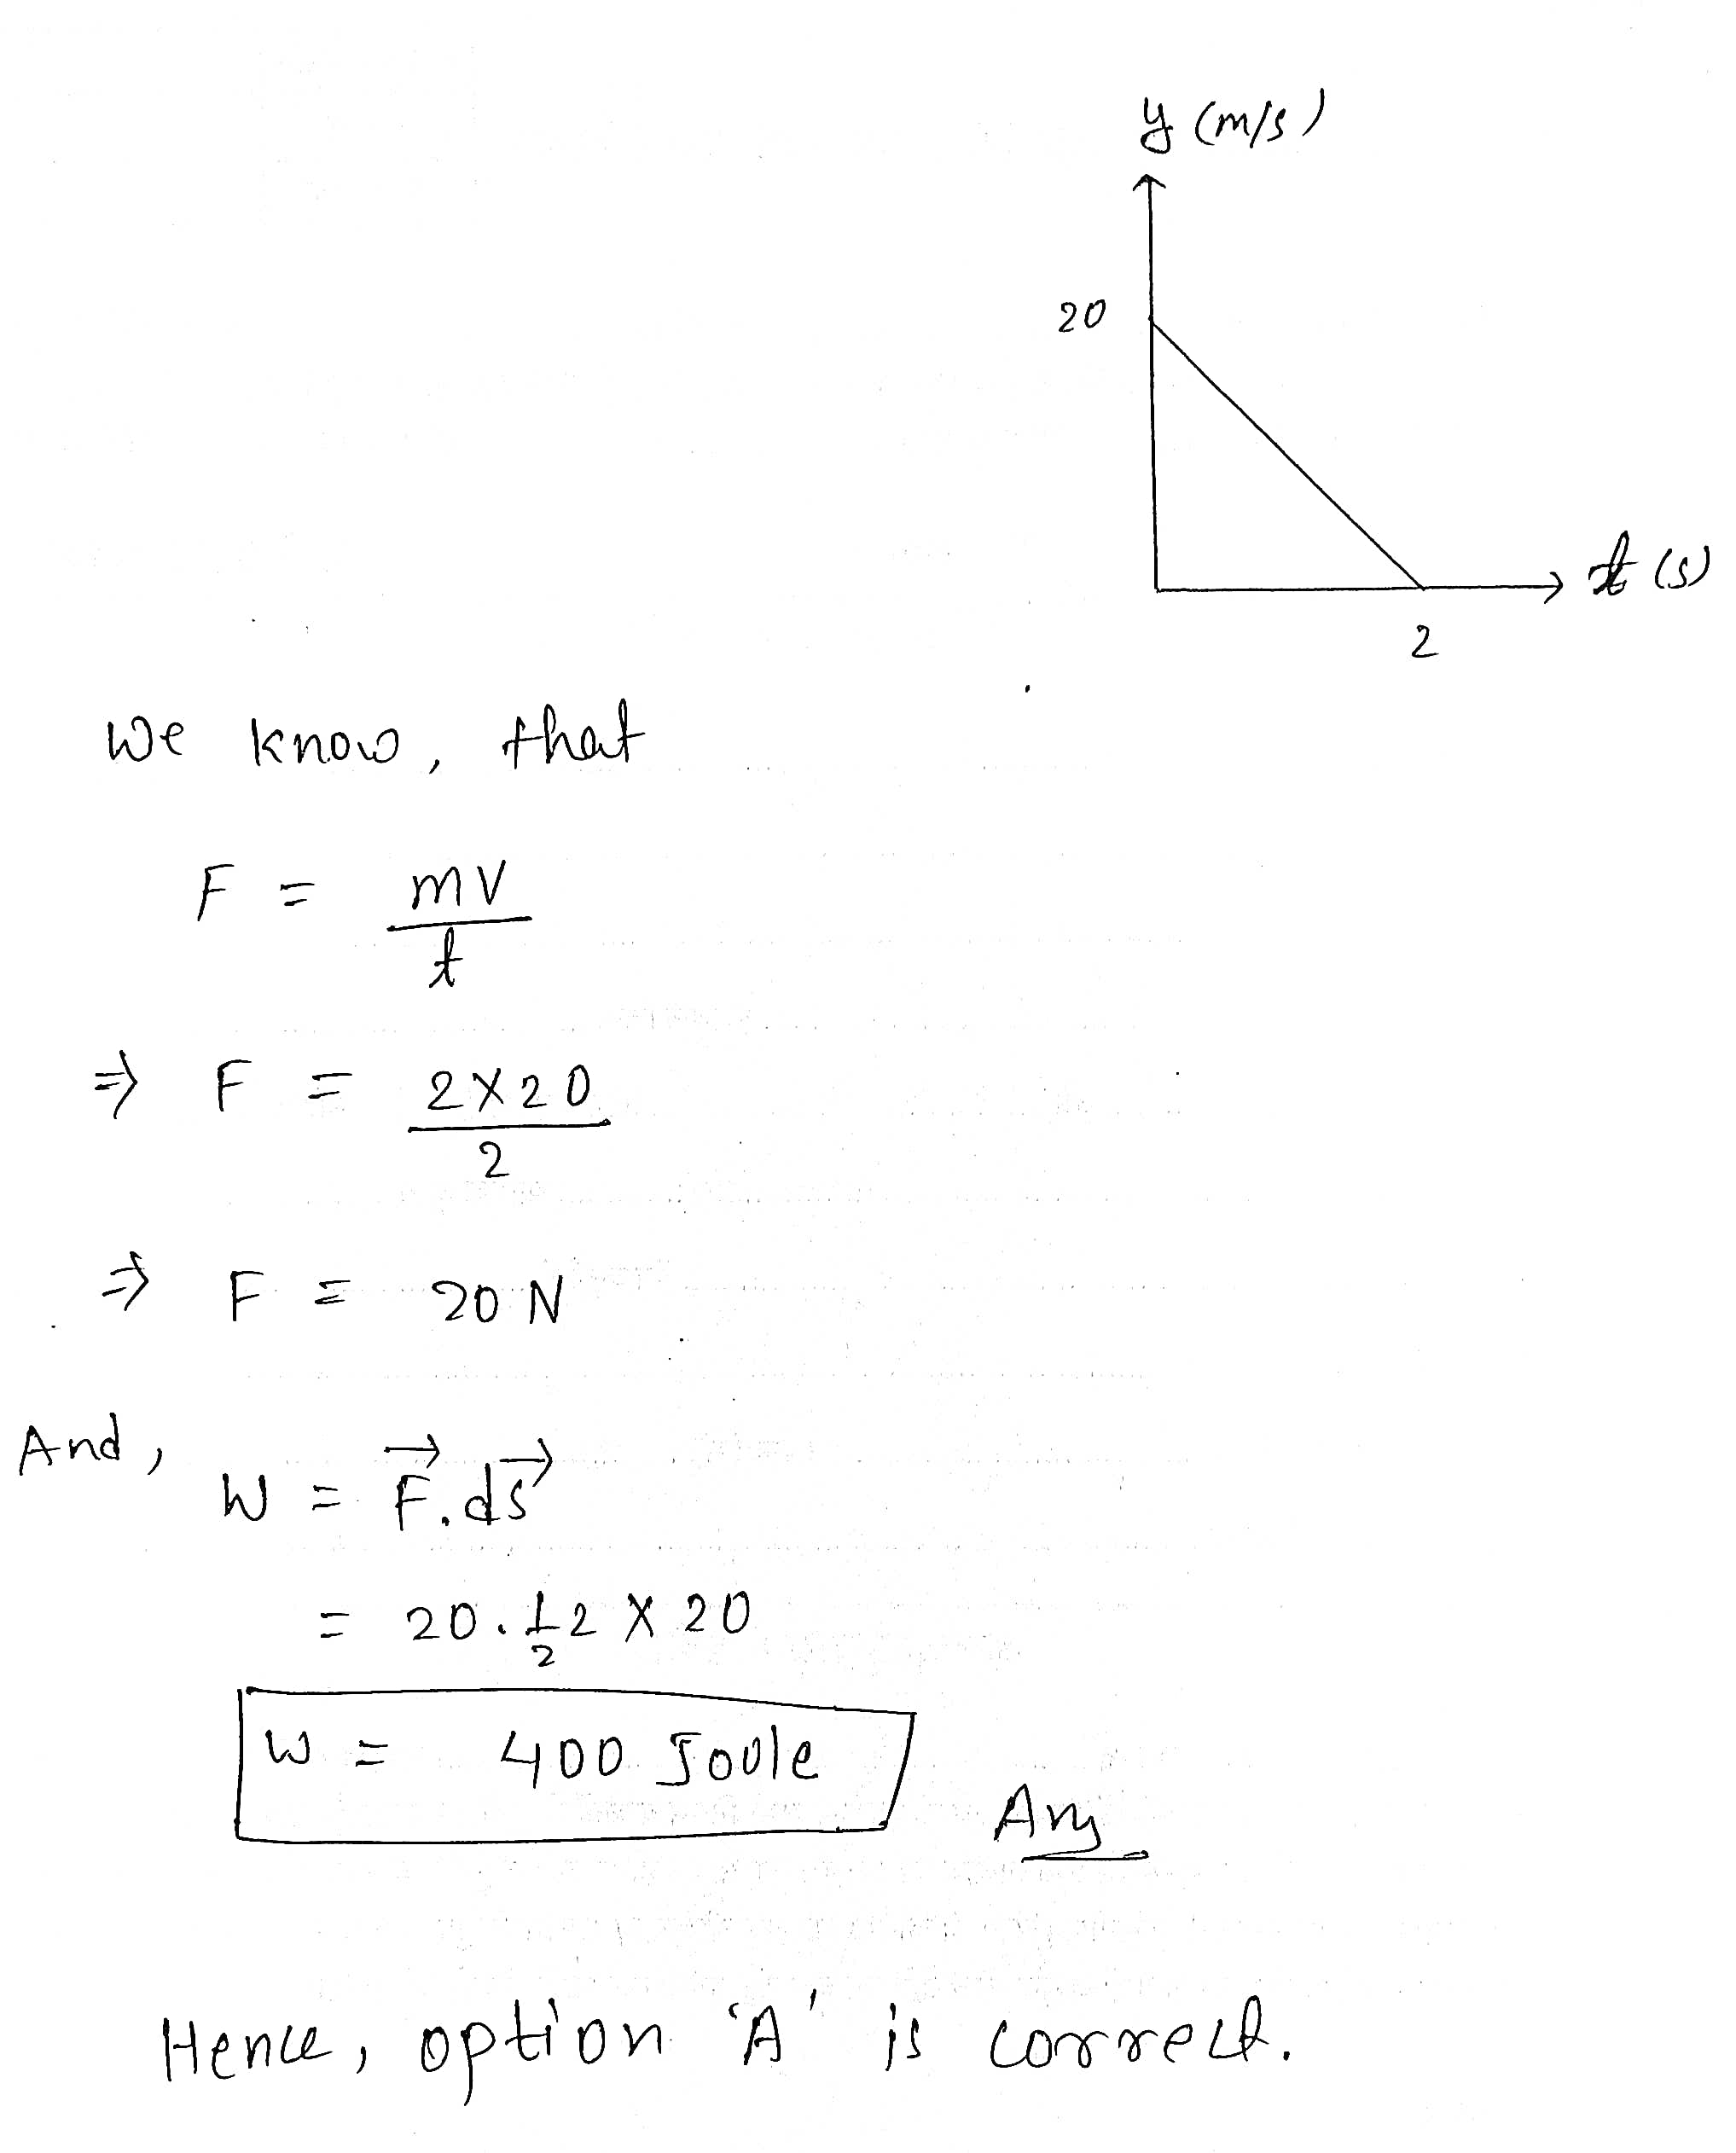 y (m/s)
20
t (s)
2
We know, that
F = mv
t
⇒ F = 2×20
2
⇒ F = 20 N
And,
W = F⃗.ds⃗
= 20.½2 × 20
W = 400 Joule
Ans
Hence, option 'A' is correct.